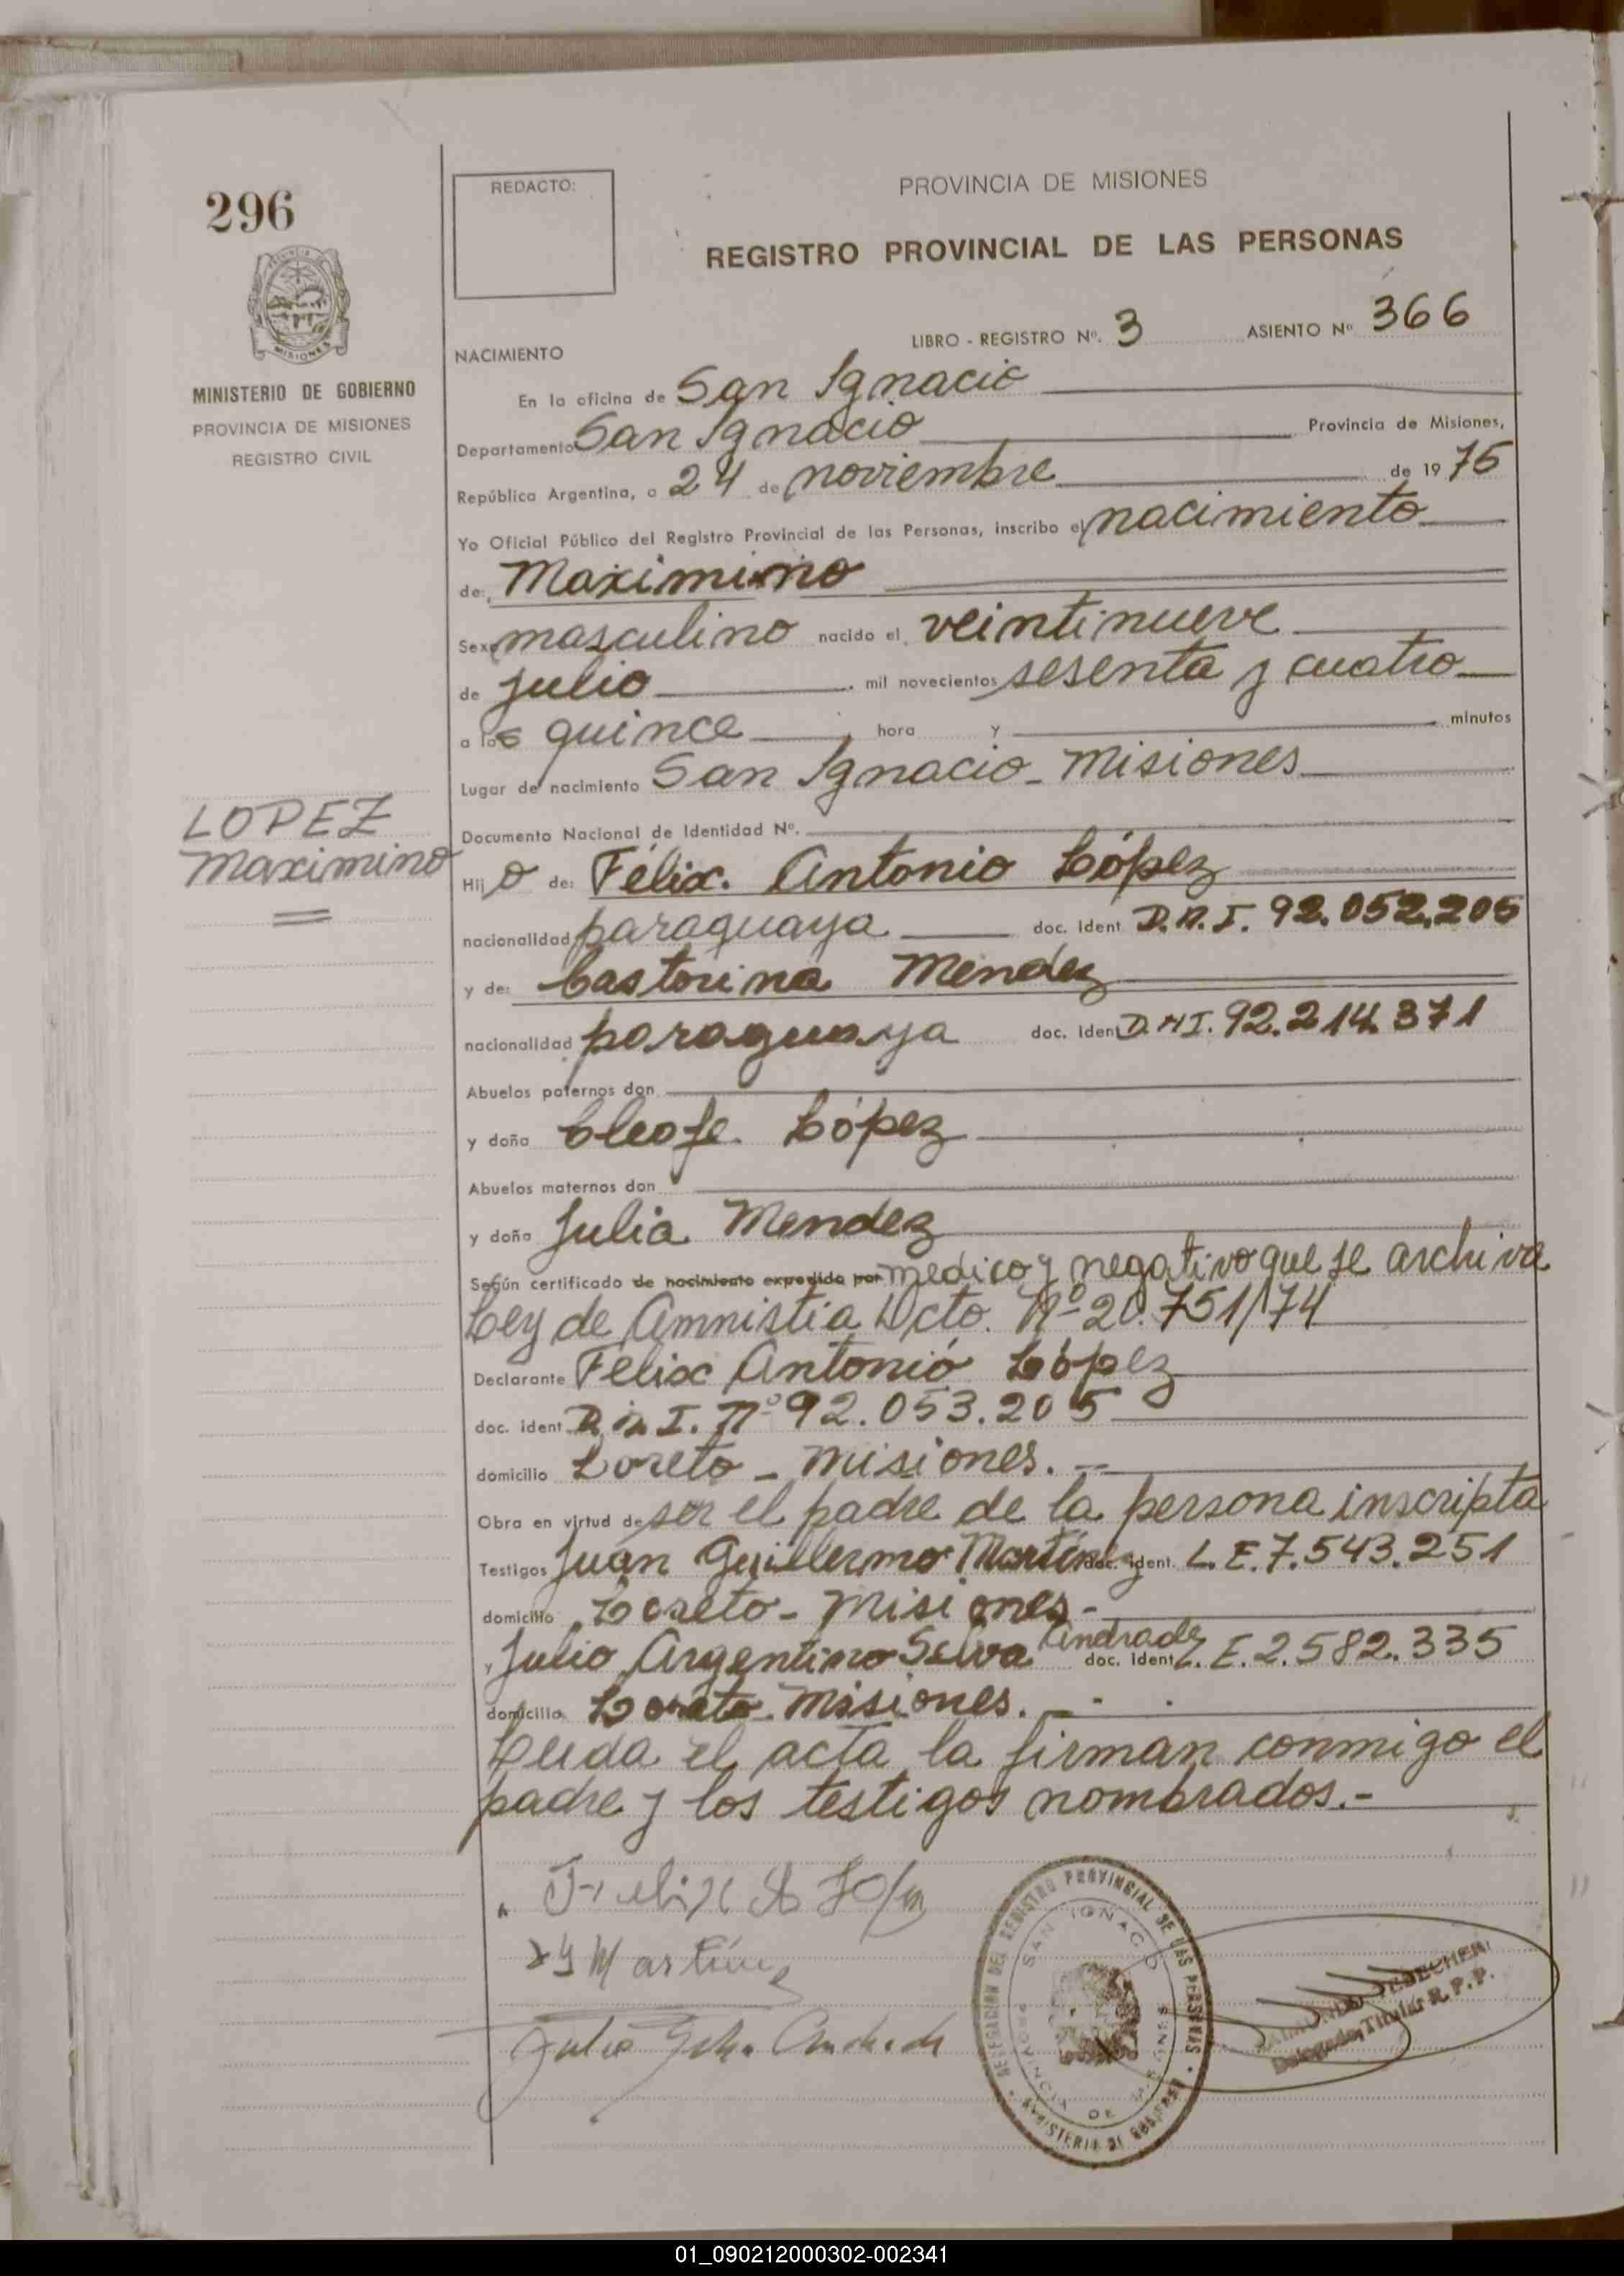 296
REDACTO:
PROVINCIA DE MISIONES
REGISTRO PROVINCIAL DE LAS PERSONAS
MISIONES
MINISTERIO DE GOBIERNO
PROVINCIA DE MISIONES
REGISTRO CIVIL
LIBRO - REGISTRO Nº. 3 ASIENTO Nº 366
NACIMIENTO
En la oficina de San Ignacio
Departamento San Ignacio Provincia de Misiones,
República Argentina, a 24 de noviembre de 19 75
Yo Oficial Público del Registro Provincial de las Personas, inscribo el nacimiento
de: Maximino
Sexo masculino nacido el veintinueve
de julio mil novecientos sesenta y cuatro
a las quince hora y minutos
Lugar de nacimiento San Ignacio - Misiones
LOPEZ
Maximino
Documento Nacional de Identidad Nº.
Hijo de: Félix. Antonio López
nacionalidad paraguaya doc. ident D.N.I. 92.052.205
y de: Castorina Mendez
nacionalidad paraguaya doc. ident D.N.I. 92.214.371
Abuelos paternos don
y doña Cleofe. López
Abuelos maternos don
y doña Julia Mendez
Según certificado de nacimiento expedido por medico y negativo que se archiva
Ley de Amnistia Dcto. Nº 20.751/74
Declarante Felix Antonio López
doc. ident D.N.I. Nº 92.053.205
domicilio Loreto - Misiones. -
Obra en virtud de ser el padre de la persona inscripta
Testigos Juan Guillermo Martinez doc. ident. L.E. 7.543.251
domicilio Loreto - Misiones -
y Julio Argentino Selva Andrade doc. ident L.E. 2.582.335
domicilio Loreto - Misiones. -
Leida el acta la firman conmigo el
padre y los testigos nombrados.-
Felix A Lopez
J G Martínez
Julio Selva Andrade
DELEGACION DEL REGISTRO PROVINCIAL DE LAS PERSONAS
SAN IGNACIO
PROVINCIA DE MISIONES
MINISTERIO DE GOBIERNO
Delegado Titular R. P. P.
01_090212000302-002341